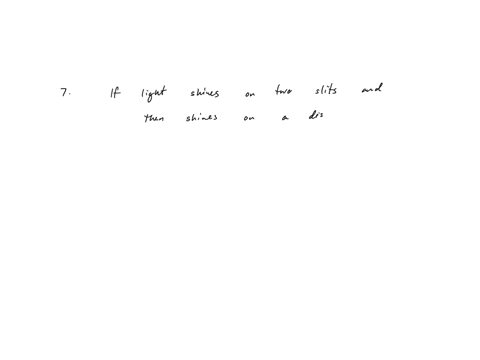 7. If light shines on two slits and
then shines on a dis